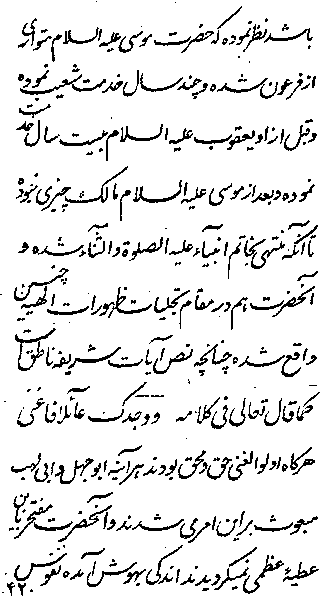 باشد نظر نموده که حضرت موسی علیه السلام متواری
از فرعون شده و چند سال خدمت شعیب نموده
و قبل از او یعقوب علیه السلام بیست سال خدمت
نموده و بعد از موسی علیه السلام مالک چیزی نبوده
تا آنکه منتهی بخاتم انبیآء علیه الصلوة والثنآء شده و
آنحضرت هم در مقام تجلیات ظهورات الهیه چنین
واقع شده چنانچه نص آیات شریفه ناطق است
کما قال تعالی فی کلامه ووجدک عائلا فاغنی
هر کاه اولوا الغنی حق و محق بودند هر آینه ابو جهل و ابی لهب
مبعوث بر این امری شدند و آنحضرت مفتخر باین
عطیهٔ عظمی نمیکردیدند اندکی بهوش آمده نفوس
۴۲